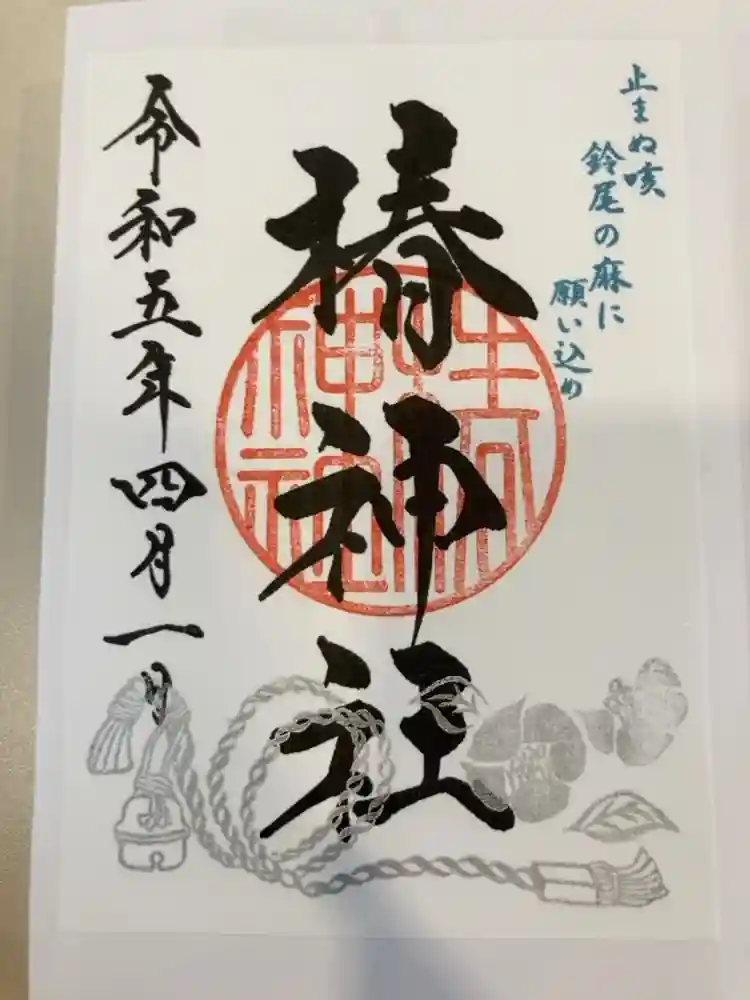 止まぬ咳
鈴尾の麻に
願い込め
椿神社
令和五年四月一日